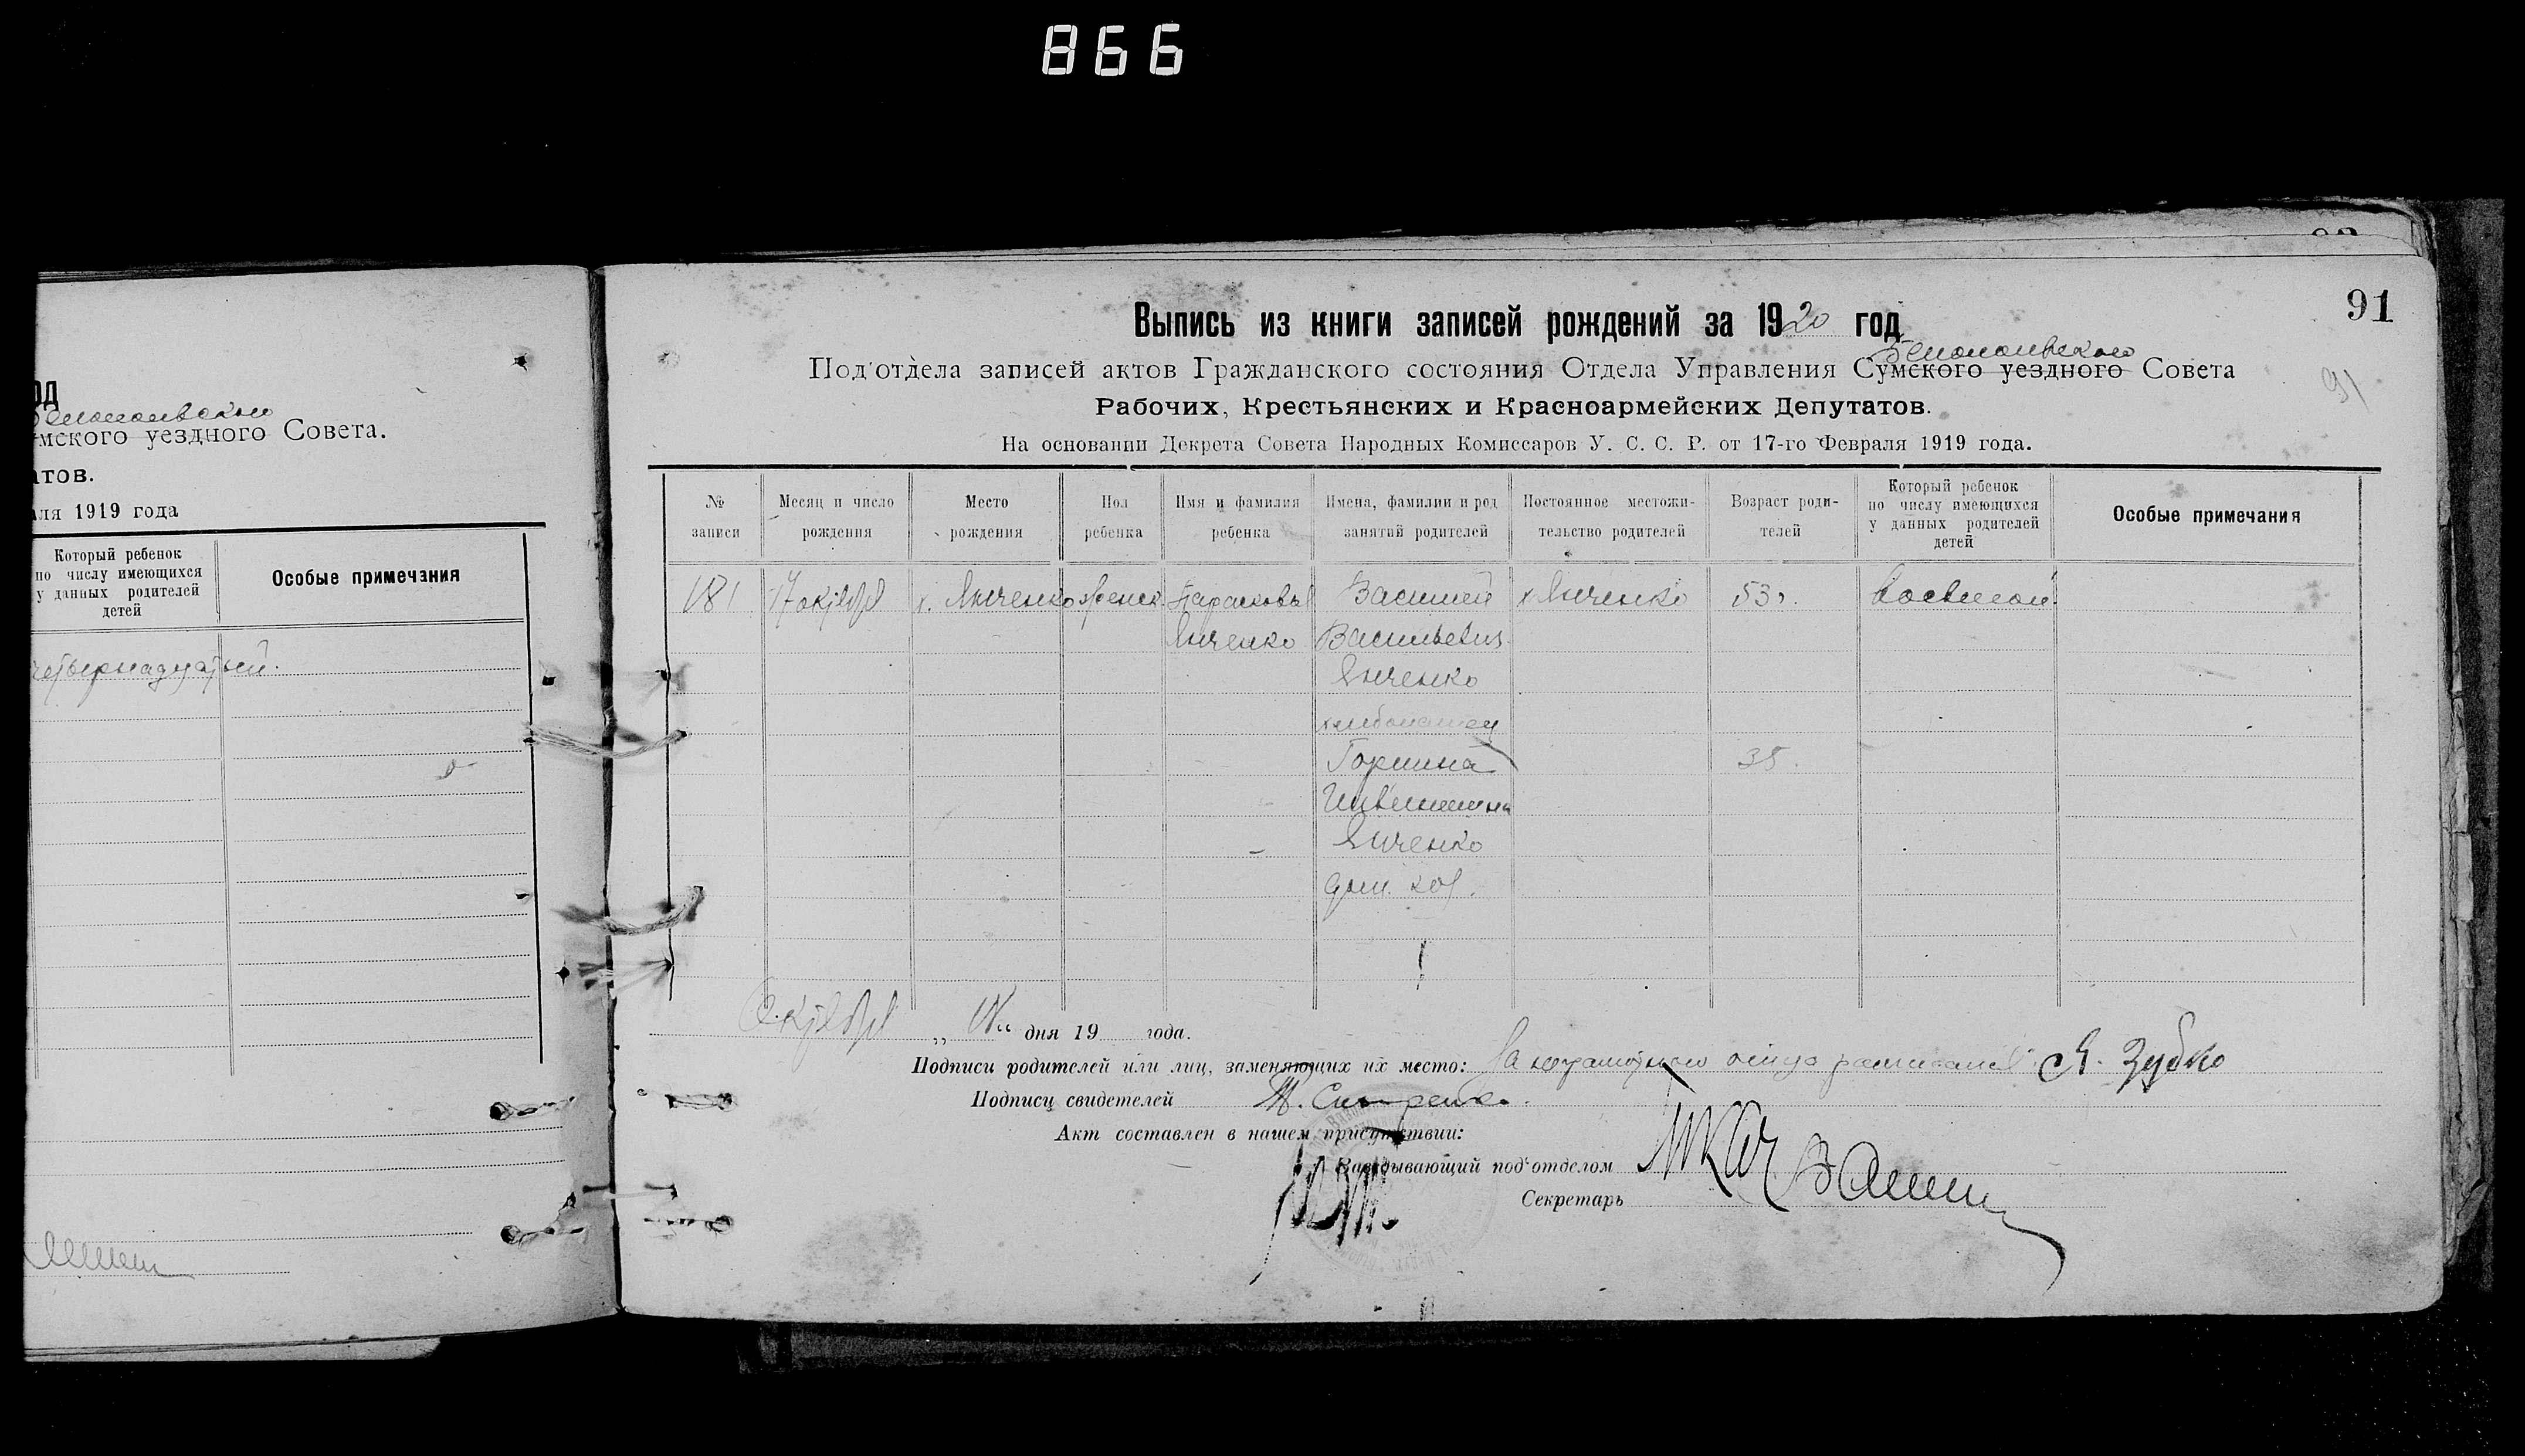 866
91
Выпись из книги записей рождений за 1920 год
Под'отдела записей актов Гражданского состояния Отдела Управления Сумского уездного Совета
91
Рабочих, Крестьянских и Красноармейских Депутатов.
На основании Декрета Совета Народных Комиссаров У. С. С. Р. от 17-го Февраля 1919 года.
од
мского уездного Совета.
атов.
аля 1919 года
Который ребенок
по числу имеющихся
у данных родителей
детей
Особые примечания
четырнадцатый.
№ записи
Месяц и число рождения
Место рождения
Пол ребенка
Имя и фамилия ребенка
Имена, фамилии и род занятий родителей
Постоянное местожительство родителей
Возраст родителей
Который ребенок по числу имеющихся у данных родителей детей
Особые примечания
181 17 октября х. Янченко женск. Парасковья Василий х Янченко 53 г. восьмой.
Янченко Васильевич
Янченко
хлебопашец
35.
Янченко
дом. хоз.
Октября „18“ дня 19 года.
Подписи родителей или лиц, заменяющих их место: За неграмотного отца расписался Я. Зубко
Подписи свидетелей
Акт составлен в нашем присутствии:
Заведывающий под'отделом
Секретарь